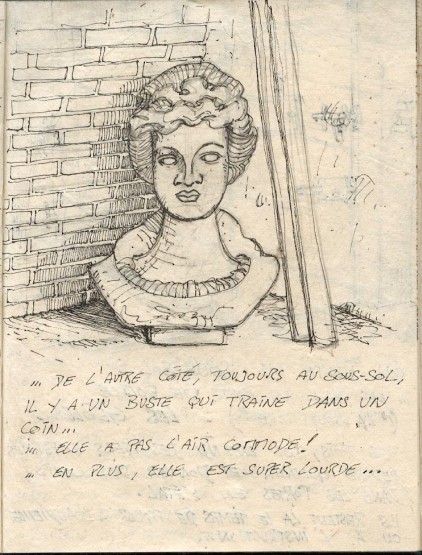 ... DE L'AUTRE CÔTÉ, TOUJOURS AU SOUS-SOL,
IL Y A UN BUSTE QUI TRAINE DANS UN
COIN...
... ELLE A PAS L'AIR COMMODE!
... EN PLUS, ELLE EST SUPER LOURDE...